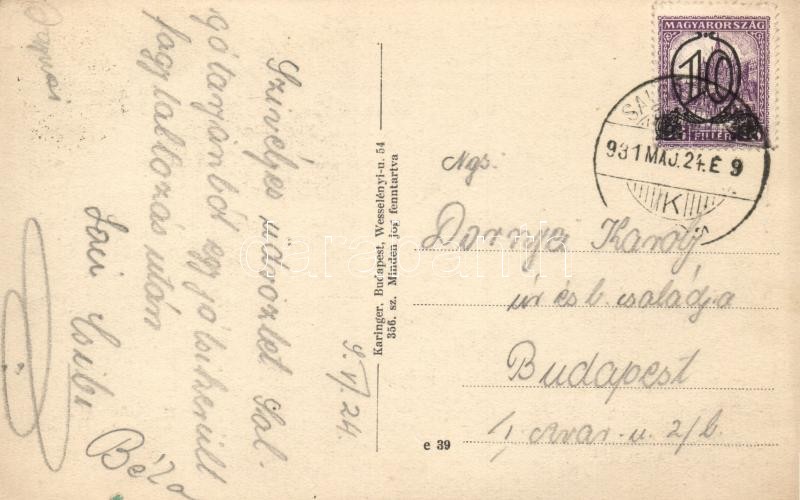 Szivélyes üdvözlet Sal-
gótarjánból egy jól sikerült
fagylaltozás után
Béla
9.V/24.
Karinger, Budapest, Wesselényi-u. 54
356. sz. Minden jog fenntartva
MAGYARORSZÁG
10
FILLÉR
931 MAJ. 24. E 9
K
Ngs.
Dornyai Károly
úr és b. családja
Budapest
I, Avar-u. 2/b.
e 39